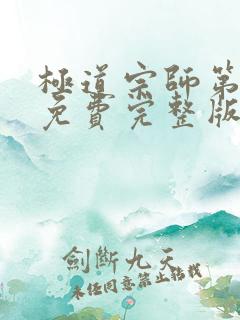 極道宗師第
免費完整版
劍斷九天
未经同意禁止转载